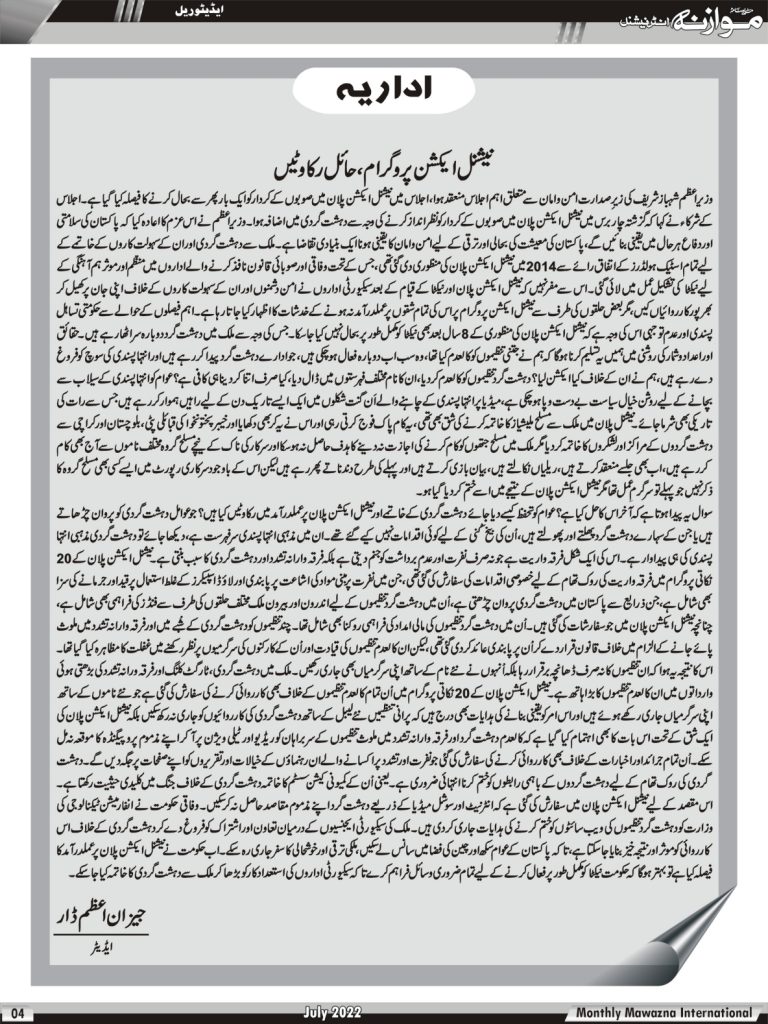 ایڈیٹوریل
موازنہ انٹرنیشنل
اداریہ
نیشنل ایکشن پروگرام، حائل رکاوٹیں
وزیراعظم شہباز شریف کی زیر صدارت امن و امان سے متعلق اہم اجلاس منعقد ہوا، اجلاس میں نیشنل ایکشن پلان میں صوبوں کے کردار کو ایک بار پھر سے بحال کرنے کا فیصلہ کیا گیا ہے۔ اجلاس
کے شرکاء نے کہا کہ گزشتہ چار برس میں نیشنل ایکشن پلان میں صوبوں کے کردار کو نظر انداز کرنے کی وجہ سے دہشت گردی میں اضافہ ہوا۔ وزیراعظم نے اس عزم کا اعادہ کیا کہ پاکستان کی سلامتی
اور دفاع ہر حال میں یقینی بنائیں گے، پاکستان کی معیشت کی بحالی اور ترقی کے لیے امن و امان کا یقینی ہونا ایک بنیادی تقاضا ہے۔ ملک سے دہشت گردی اور ان کے سہولت کاروں کے خاتمے کے
لیے تمام اسٹیک ہولڈرز کے اتفاق رائے سے 2014 میں نیشنل ایکشن پلان کی منظوری دی گئی تھی، جس کے تحت وفاقی اور صوبائی قانون نافذ کرنے والے اداروں میں منظم اور موثر ہم آہنگی کے
لیے نیکٹا کی تشکیل عمل میں لائی گئی۔ اس سے مفر نہیں کہ نیشنل ایکشن پلان اور نیکٹا کے قیام کے بعد سیکورٹی اداروں نے امن دشمنوں اور ان کے سہولت کاروں کے خلاف اپنی جان پر کھیل کر
بھر پور کارروائیاں کیں، مگر بعض حلقوں کی طرف سے نیشنل ایکشن پروگرام پر اس کی تمام شقوں پر عملدرآمد نہ ہونے کے خدشات کا اظہار کیا جاتا رہا ہے۔ اہم فیصلوں کے حوالے سے حکومتی تساہل
پسندی اور عدم توجہی اس کی وجہ ہے کہ نیشنل ایکشن پلان کی منظوری کے 8 سال بعد بھی نیکٹا کو مکمل طور پر بحال نہیں کیا جا سکا۔ جس کی وجہ سے ملک میں دہشت گرد دوبارہ سر اٹھا رہے ہیں۔ حقائق
اور اعداد و شمار کی روشنی میں ہمیں یہ تسلیم کرنا ہو گا کہ ہم نے جتنی تنظیموں کو کالعدم کیا تھا، وہ سب اب دوبارہ فعال ہو چکی ہیں، جو ادارے دہشت گرد پیدا کر رہے ہیں اور انتہا پسندی کی سوچ کو فروغ
دے رہے ہیں، ہم نے ان کے خلاف کیا ایکشن لیا؟ دہشت گرد تنظیموں کو کالعدم کر دیا، ان کا نام مختلف فہرستوں میں ڈال دیا، کیا صرف اتنا کر دینا ہی کافی ہے؟ عوام کو انتہا پسندی کے سیلاب سے
بچانے کے لیے روشن خیال سیاست بے دست و پا ہو چکی ہے، میڈیا پر انتہا پسندی کے چاہنے والے اَن گنت شکلوں میں ایک ایسے تاریک دن کے لیے راہیں ہموار کر رہے ہیں جس سے رات کی
تاریکی بھی شرما جائے۔ نیشنل پلان میں ملک سے مسلح ملیشیاز کا خاتمہ کرنے کی شق بھی تھی، یہ کام پاک فوج کرتی رہی اور اس نے یہ کر بھی دکھایا اور خیبر پختونخوا کی قبائلی پٹی، بلوچستان اور کراچی سے
دہشت گردوں کے مراکز اور لشکروں کا خاتمہ کر دیا مگر ملک میں مسلح جتھوں کو کام کرنے کی اجازت نہ دینے کا ہدف حاصل نہ ہو سکا اور سرکار کی ناک کے نیچے مسلح گروہ مختلف ناموں سے آج بھی کام
کر رہے ہیں، اب بھی جلسے منعقد کرتے ہیں، ریلیاں نکالتے ہیں، بیان بازی کرتے ہیں اور پہلے کی طرح دندناتے پھر رہے ہیں لیکن اس کے باوجود سرکاری رپورٹ میں ایسے کسی بھی مسلح گروہ کا
ذکر نہیں جو پہلے تو سرگرم عمل تھا مگر نیشنل ایکشن پلان کے نتیجے میں اسے ختم کر دیا گیا ہو۔
سوال یہ پیدا ہوتا ہے کہ آخر اس کا حل کیا ہے؟ عوام کو تحفظ کیسے دیا جائے دہشت گردی کے خاتمے اور نیشنل ایکشن پلان پر عملدرآمد میں رکاوٹیں کیا ہیں؟ جو عوامل دہشت گردی کو پروان چڑھاتے
ہیں یا جن کے سہارے دہشت گرد پھلتے اور پھولتے ہیں، اُن کی بیخ کنی کے لیے کوئی اقدامات نہیں کیے گئے تھے۔ ان میں مذہبی انتہا پسندی سرفہرست ہے، دیکھا جائے تو دہشت گردی مذہبی انتہا
پسندی کی ہی پیداوار ہے۔ اس کی ایک شکل فرقہ واریت ہے جو نہ صرف نفرت اور عدم برداشت کو جنم دیتی ہے بلکہ فرقہ وارانہ تشدد اور دہشت گردی کا سبب بنتی ہے۔ نیشنل ایکشن پلان کے 20
نکاتی پروگرام میں فرقہ واریت کی روک تھام کے لیے خصوصی اقدامات کی سفارش کی گئی تھی، جن میں نفرت پر مبنی مواد کی اشاعت پر پابندی اور لاؤڈ اسپیکرز کے غلط استعمال پر قید اور جرمانے کی سزا
بھی شامل ہے، جن ذرایع سے پاکستان میں دہشت گردی پروان چڑھتی ہے، اُن میں دہشت گرد تنظیموں کے لیے اندرون اور بیرون ملک مختلف حلقوں کی طرف سے فنڈز کی فراہمی بھی شامل ہے،
چنانچہ نیشنل ایکشن پلان میں جو سفارشات کی گئی ہیں۔ اُن میں دہشت گرد تنظیموں کی مالی امداد کی فراہمی روکنا بھی شامل تھا۔ چند تنظیموں کو دہشت گردی کے شبے میں اور فرقہ وارانہ تشدد میں ملوث
پائے جانے کے الزام میں خلاف قانون قرار دے کر اُن پر پابندی عائد کر دی گئی تھی، لیکن ان کالعدم تنظیموں کی قیادت اور اُن کے کارکنوں کی سرگرمیوں پر نظر رکھنے میں غفلت کا مظاہرہ کیا گیا تھا۔
اس کا نتیجہ یہ ہوا کہ ان تنظیموں کا نہ صرف ڈھانچہ برقرار رہا بلکہ اُنہوں نے نئے نام کے ساتھ اپنی سرگرمیاں بھی جاری رکھیں۔ ملک میں دہشت گردی، ٹارگٹ کلنگ اور فرقہ ورانہ تشدد کی بڑھتی ہوئی
وارداتوں میں ان کالعدم تنظیموں کا بڑا ہاتھ ہے۔ نیشنل ایکشن پلان کے 20 نکاتی پروگرام میں اُن تمام کالعدم تنظیموں کے خلاف بھی کارروائی کرنے کی سفارش کی گئی ہے جو نئے ناموں کے ساتھ
اپنی سرگرمیاں جاری رکھے ہوئے ہیں اور اس امر کو یقینی بنانے کی ہدایات بھی درج ہیں کہ پرانی تنظیمیں نئے لیبل کے ساتھ دہشت گردی کی کارروائیوں کو جاری نہ رکھ سکیں بلکہ نیشنل ایکشن پلان کی
ایک شق کے تحت اس بات کا بھی اہتمام کیا گیا ہے کہ کالعدم دہشت گرد اور فرقہ وارانہ تشدد میں ملوث تنظیموں کے سربراہان کو ریڈیو اور ٹیلی ویژن پر آ کر اپنے مذموم پروپیگنڈہ کا موقعہ نہ مل
سکے۔ اُن تمام جرائد اور اخبارات کے خلاف بھی کارروائی کرنے کی سفارش کی گئی جو نفرت اور تشدد پر اکسانے والے ان رہنماؤں کے خیالات اور تقریروں کو اپنے صفحات پر جگہ دیں گے۔ دہشت
گردی کی روک تھام کے لیے دہشت گردوں کے باہمی رابطوں کو ختم کرنا انتہائی ضروری ہے۔ یعنی اُن کے کمیونی کیشن سسٹم کا خاتمہ دہشت گردی کے خلاف جنگ میں کلیدی حیثیت رکھتا ہے۔
اس مقصد کے لیے نیشنل ایکشن پلان میں سفارش کی گئی ہے کہ انٹرنیٹ اور سوشل میڈیا کے ذریعے دہشت گرد اپنے مذموم مقاصد حاصل نہ کر سکیں۔ وفاقی حکومت نے انفارمیشن ٹیکنالوجی کی
وزارت کو دہشت گرد تنظیموں کی ویب سائٹوں کو ختم کرنے کی ہدایات جاری کر دی ہیں۔ ملک کی سیکیورٹی ایجنسیوں کے درمیان تعاون اور اشتراک کو فروغ دے کر دہشت گردی کے خلاف اس
کارروائی کو موثر اور نتیجہ خیز بنایا جا سکتا ہے، تاکہ پاکستان کے عوام سکھ اور چین کی فضا میں سانس لے سکیں، ملکی ترقی اور خوشحالی کا سفر جاری رہ سکے۔ اب حکومت نے نیشنل ایکشن پلان پر عملدرآمد کا
فیصلہ کیا ہے تو بہتر ہو گا کہ حکومت نیکٹا کو مکمل طور پر فعال کرنے کے لیے تمام ضروری وسائل فراہم کرے تاکہ سیکیورٹی اداروں کی استعداد کار کو بڑھا کر ملک سے دہشت گردی کا خاتمہ کیا جا سکے۔
جیزان اعظم ڈار
ایڈیٹر
04
July 2022
Monthly Mawazna International